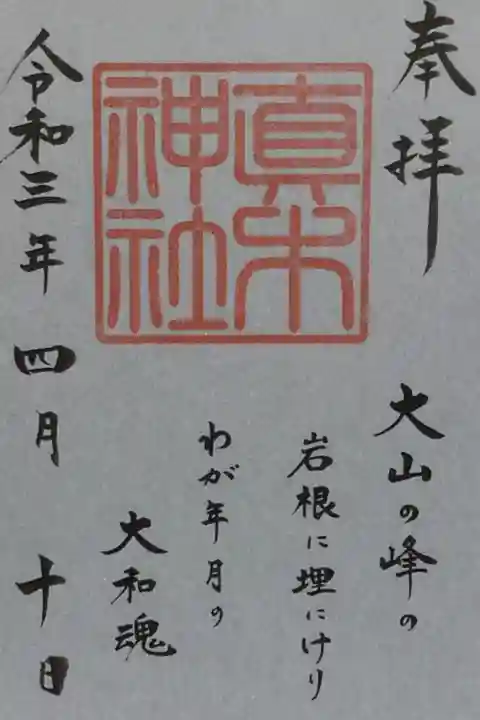 奉拝
大山の峰の
岩根に埋にけり
わが年月の
大和魂
真木
神社
令和三年四月十日